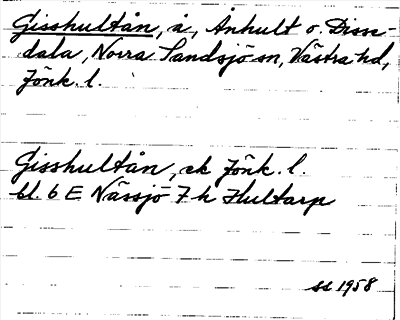 Gisshultån, å, Ånhult o. Disse-
dala, Norra Sandsjö sn, Västra hd,
Jönk. l.
Gisshultån, ek Jönk. l.
bl. 6 E Nässjö 7 h Hultarp
1958